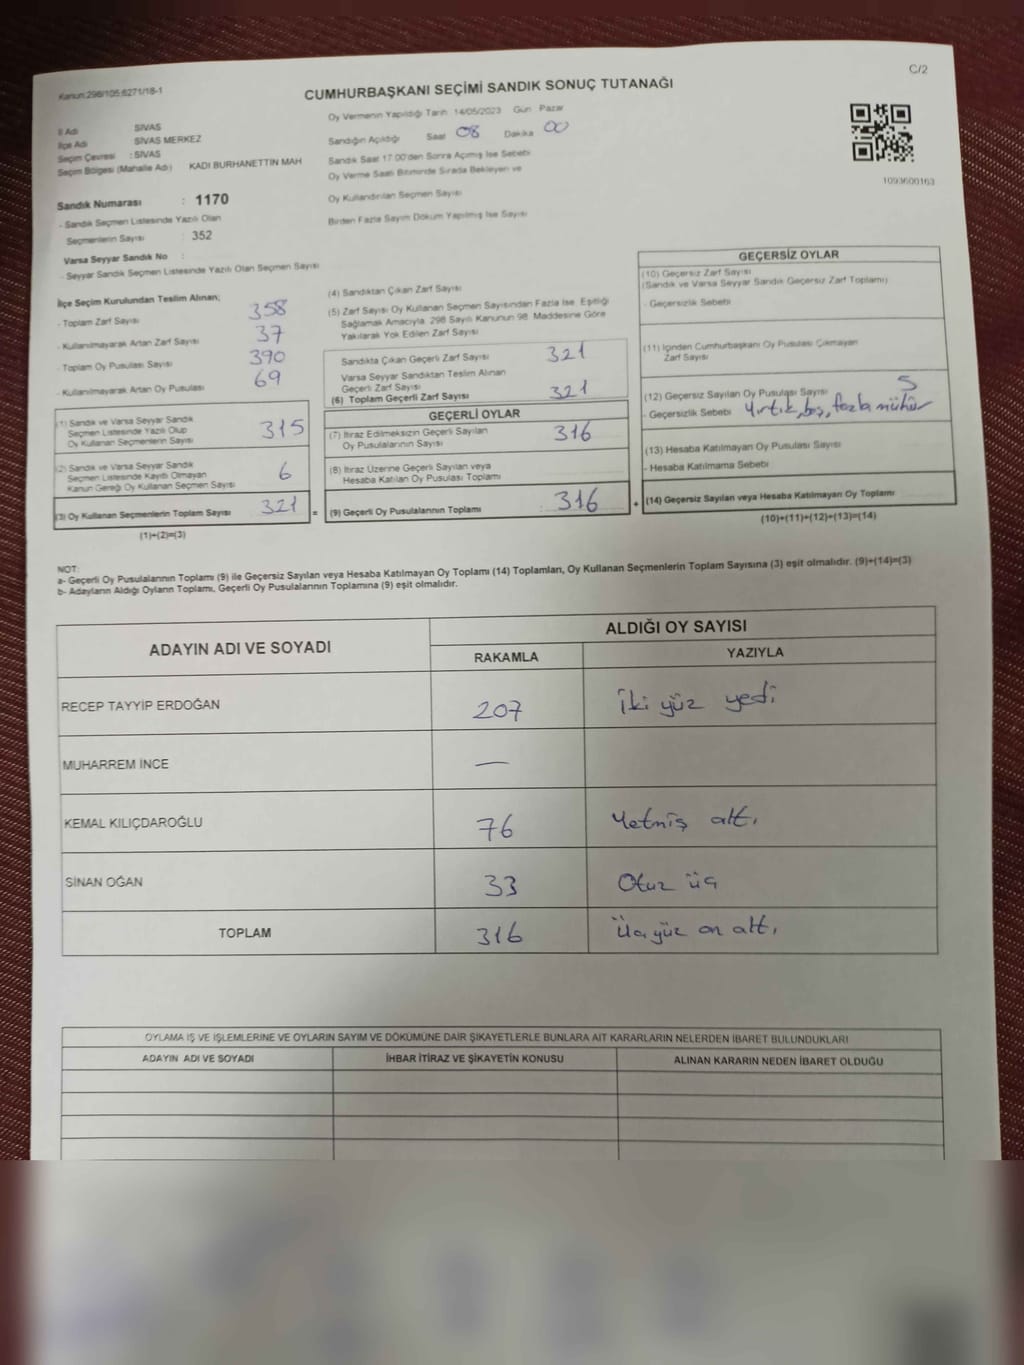 Kanun:298/105;6271/18-1
C/2
CUMHURBAŞKANI SEÇİMİ SANDIK SONUÇ TUTANAĞI
İl Adı : SİVAS
İlçe Adı : SİVAS MERKEZ
Seçim Çevresi : SİVAS
Seçim Bölgesi (Mahalle Adı) KADI BURHANETTIN MAH
Sandık Numarası : 1170
- Sandık Seçmen Listesinde Yazılı Olan
Seçmenlerin Sayısı : 352
Varsa Seyyar Sandık No :
- Seyyar Sandık Seçmen Listesinde Yazılı Olan Seçmen Sayısı
Oy Vermenin Yapıldığı Tarih 14/05/2023 Gün Pazar
Sandığın Açıldığı Saat 08 Dakika 00
Sandık Saat 17.00'den Sonra Açımış İse Sebebi
Oy Verme Saati Bitiminde Sırada Bekleyen ve
Oy Kullandırılan Seçmen Sayısı
Birden Fazla Sayım Döküm Yapılmış İse Sayısı
1093600163
İlçe Seçim Kurulundan Teslim Alınan;
- Toplam Zarf Sayısı 358
- Kullanılmayarak Artan Zarf Sayısı 37
- Toplam Oy Pusulası Sayısı 390
- Kullanılmayarak Artan Oy Pusulası 69
(1) Sandık ve Varsa Seyyar Sandık
Seçmen Listesinde Yazılı Olup
Oy Kullanan Seçmenlerin Sayısı 315
(2) Sandık ve Varsa Seyyar Sandık
Seçmen Listesinde Kayıtlı Olmayan
Kanun Gereği Oy Kullanan Seçmen Sayısı 6
(3) Oy Kullanan Seçmenlerin Toplam Sayısı 321 =
(1)+(2)=(3)
(4) Sandıktan Çıkan Zarf Sayısı
(5) Zarf Sayısı Oy Kullanan Seçmen Sayısından Fazla İse, Eşitliği
Sağlamak Amacıyla, 298 Sayılı Kanunun 98. Maddesine Göre
Yakılarak Yok Edilen Zarf Sayısı
Sandıkta Çıkan Geçerli Zarf Sayısı 321
Varsa Seyyar Sandıktan Teslim Alınan
Geçerli Zarf Sayısı
(6) Toplam Geçerli Zarf Sayısı 321
GEÇERLİ OYLAR
(7) İtiraz Edilmeksizin Geçerli Sayılan
Oy Pusulalarının Sayısı 316
(8) İtiraz Üzerine Geçerli Sayılan veya
Hesaba Katılan Oy Pusulası Toplamı
(9) Geçerli Oy Pusulalarının Toplamı : 316 +
GEÇERSİZ OYLAR
(10) Geçersiz Zarf Sayısı
(Sandık ve Varsa Seyyar Sandık Geçersiz Zarf Toplamı)
- Geçersizlik Sebebi
(11) İçinden Cumhurbaşkanı Oy Pusulası Çıkmayan
Zarf Sayısı
(12) Geçersiz Sayılan Oy Pusulası Sayısı 5
- Geçersizlik Sebebi Yırtık, boş, fazla mühür
(13) Hesaba Katılmayan Oy Pusulası Sayısı
- Hesaba Katılmama Sebebi
(14) Geçersiz Sayılan veya Hesaba Katılmayan Oy Toplamı
(10)+(11)+(12)+(13)=(14)
NOT:
a- Geçerli Oy Pusulalarının Toplamı (9) ile Geçersiz Sayılan veya Hesaba Katılmayan Oy Toplamı (14) Toplamları, Oy Kullanan Seçmenlerin Toplam Sayısına (3) eşit olmalıdır. (9)+(14)=(3)
b- Adayların Aldığı Oyların Toplamı, Geçerli Oy Pusulalarının Toplamına (9) eşit olmalıdır.
ADAYIN ADI VE SOYADI
ALDIĞI OY SAYISI
RAKAMLA YAZIYLA
RECEP TAYYİP ERDOĞAN 207 İki yüz yedi
MUHARREM İNCE —
KEMAL KILIÇDAROĞLU 76 Yetmiş altı
SİNAN OĞAN 33 Otuz üç
TOPLAM 316 Üç yüz on altı
OYLAMA İŞ VE İŞLEMLERİNE VE OYLARIN SAYIM VE DÖKÜMÜNE DAİR ŞİKAYETLERLE BUNLARA AİT KARARLARIN NELERDEN İBARET BULUNDUKLARI
ADAYIN ADI VE SOYADI İHBAR İTİRAZ VE ŞİKAYETİN KONUSU ALINAN KARARIN NEDEN İBARET OLDUĞU